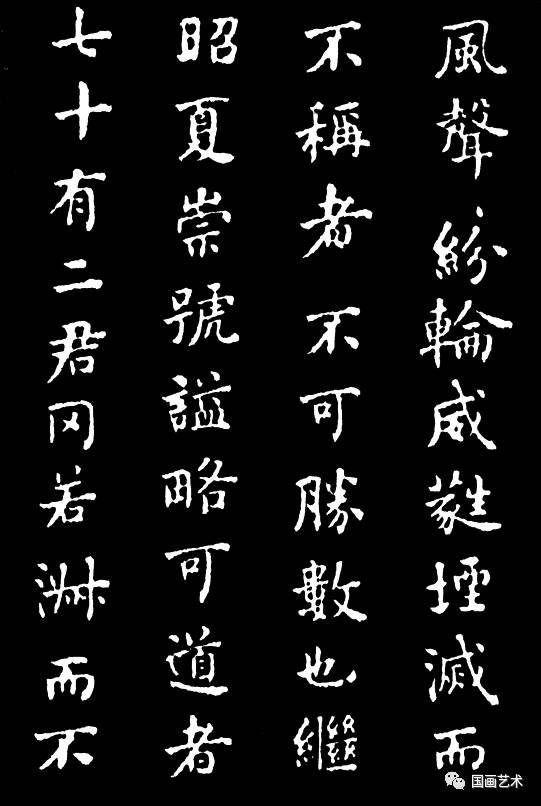 風聲紛輪威蕤堙滅而
不稱者不可勝數也繼
昭夏崇號謚略可道者
七十有二君罔若淑而不
国画艺术